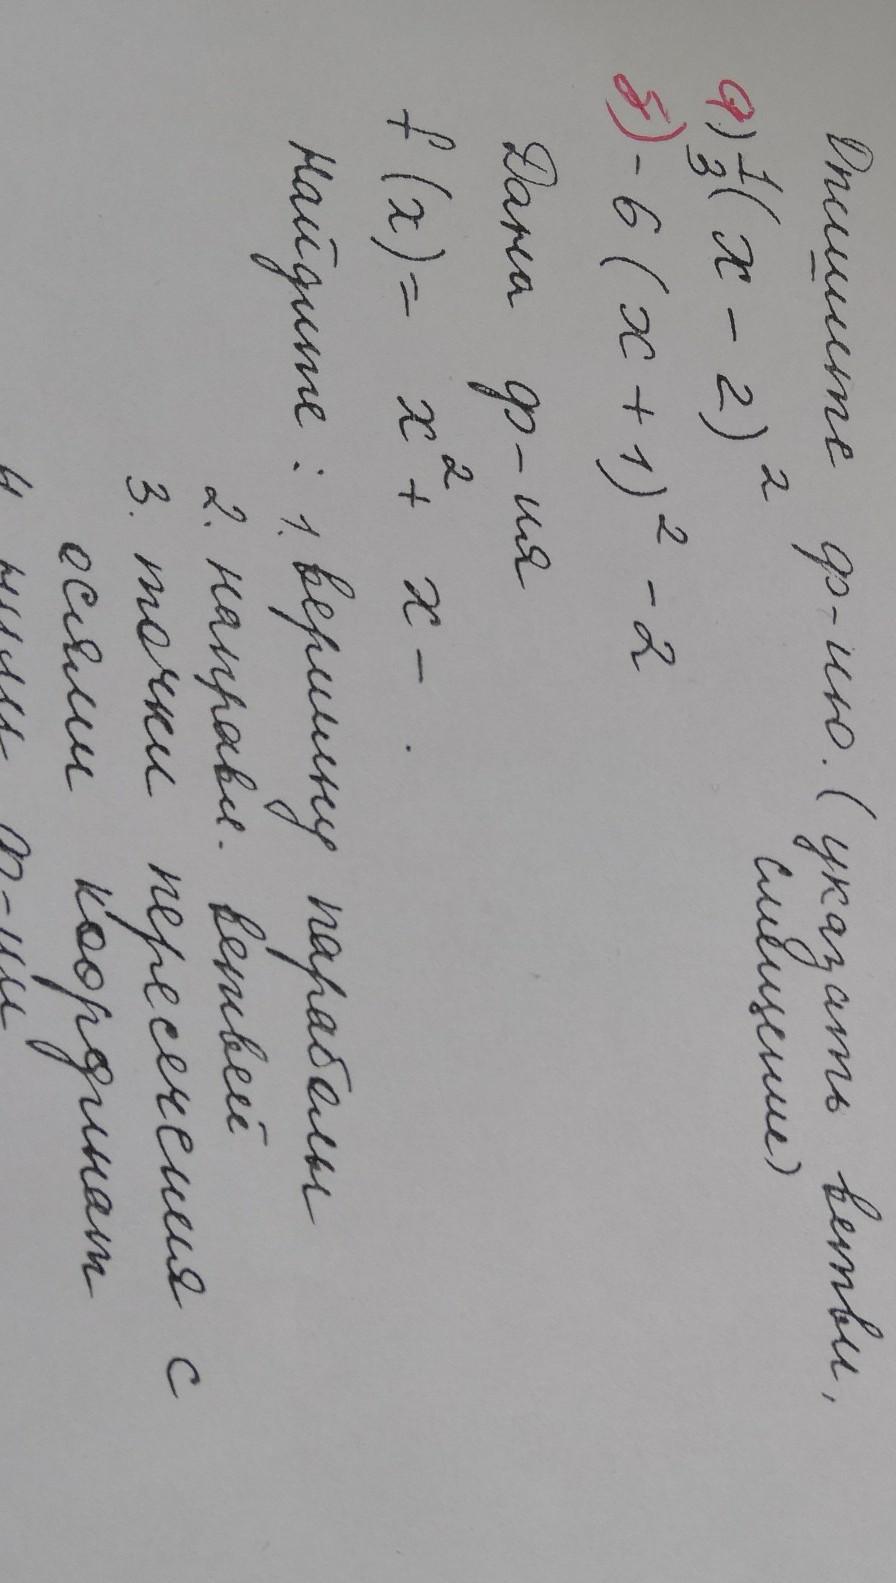 Опишите ф-ию. (указать ветви,
смещение)
а) 1/3 (x - 2)²
б) - 6 (x + 1)² - 2
Дана ф-ия
f (x) = x² + x - .
Найдите : 1. вершину параболы
2. направл. ветвей
3. точки пересечения с
осями координат
4. нули ф-ии